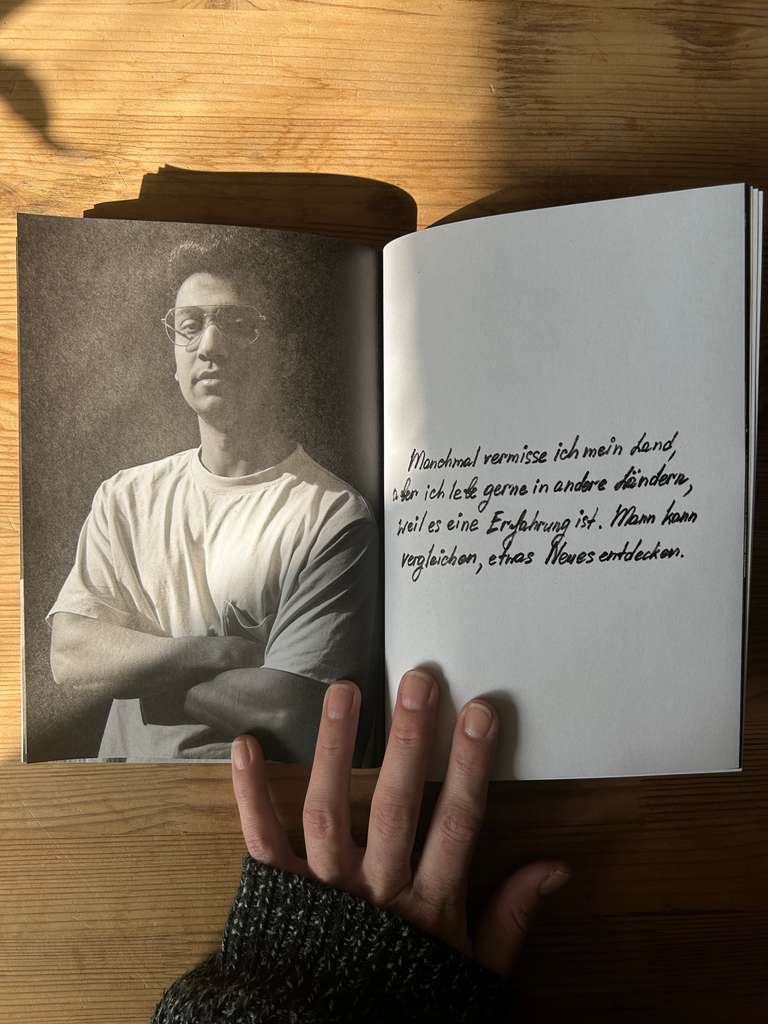 Manchmal vermisse ich mein Land,
aber ich lebe gerne in andere Ländern,
weil es eine Erfahrung ist. Mann kann
vergleichen, etwas Neues entdecken.